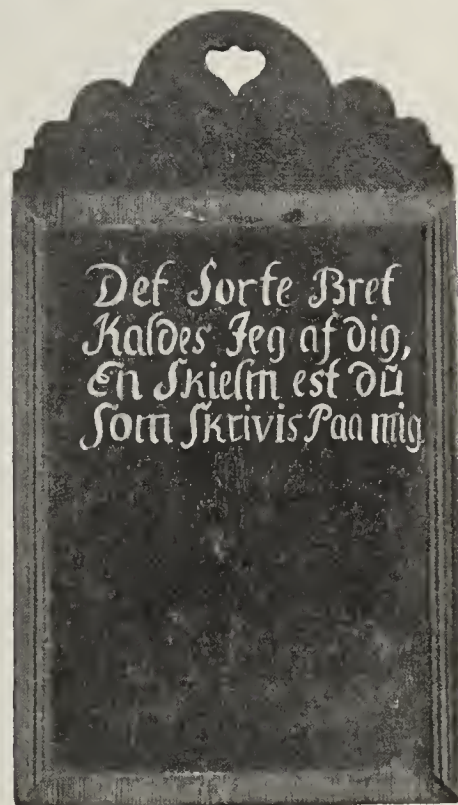 Det Sorte Bret
Kaldes Jeg af dig,
En Skielm est dü
Som Skrivis Paa mig